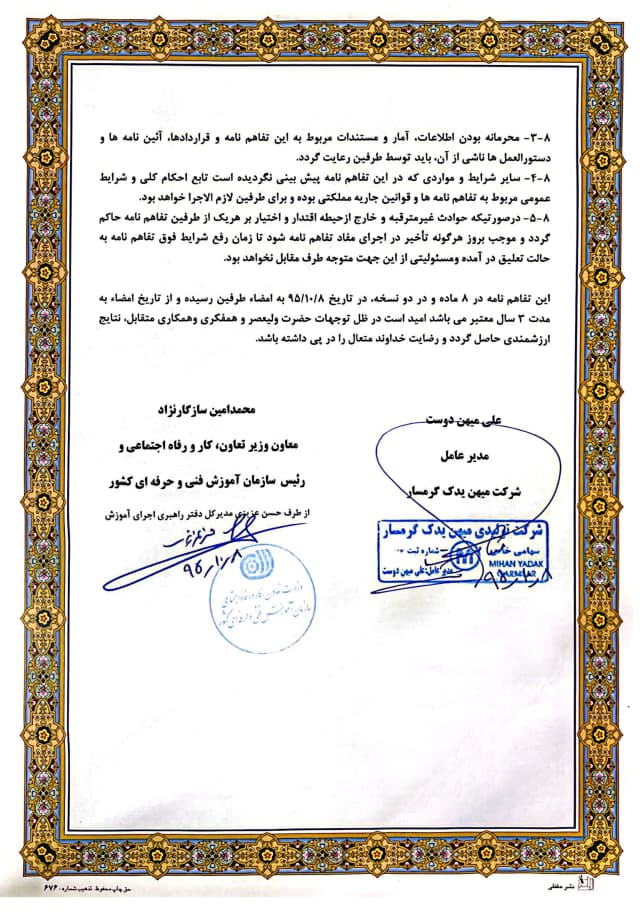 ۸-۳- محرمانه بودن اطلاعات، آمار و مستندات مربوط به این تفاهم نامه و قراردادها، آئین نامه ها و
دستورالعمل ها ناشی از آن، باید توسط طرفین رعایت گردد.
۸-۴- سایر شرایط و مواردی که در این تفاهم نامه پیش بینی نگردیده است تابع احکام کلی و شرایط
عمومی مربوط به تفاهم نامه ها و قوانین جاریه مملکتی بوده و برای طرفین لازم الاجرا خواهد بود.
۸-۵- درصورتیکه حوادث غیرمترقبه و خارج ازحیطه اقتدار و اختیار بر هریک از طرفین تفاهم نامه حاکم
گردد و موجب بروز هرگونه تأخیر در اجرای مفاد تفاهم نامه شود تا زمان رفع شرایط فوق تفاهم نامه به
حالت تعلیق در آمده ومسئولیتی از این جهت متوجه طرف مقابل نخواهد بود.
این تفاهم نامه در ۸ ماده و در دو نسخه، در تاریخ ۹۵/۱۰/۸ به امضاء طرفین رسیده و از تاریخ امضاء به
مدت ۳ سال معتبر می باشد امید است در ظل توجهات حضرت ولیعصر و همفکری وهمکاری متقابل، نتایج
ارزشمندی حاصل گردد و رضایت خداوند متعال را در پی داشته باشد.
علی میهن دوست
مدیر عامل
شرکت میهن یدک گرمسار
شرکت تولیدی میهن یدک گرمسار
سهامی خاص
شماره ثبت
MIHAN YADAK
GARMSAR
مدیر عامل: علی میهن دوست
۹۵/۱۰/۸
محمدامین سازگارنژاد
معاون وزیر تعاون، کار و رفاه اجتماعی و
رئیس سازمان آموزش فنی و حرفه ای کشور
از طرف حسن عزیزی مدیرکل دفتر راهبری اجرای آموزش
۹۵/۱۰/۸
وزارت تعاون، کار و رفاه اجتماعی
سازمان آموزش فنی و حرفه‌ای کشور
نشر حقطی
حق چاپ محفوظ. تذهیب شماره: ۶۷۶